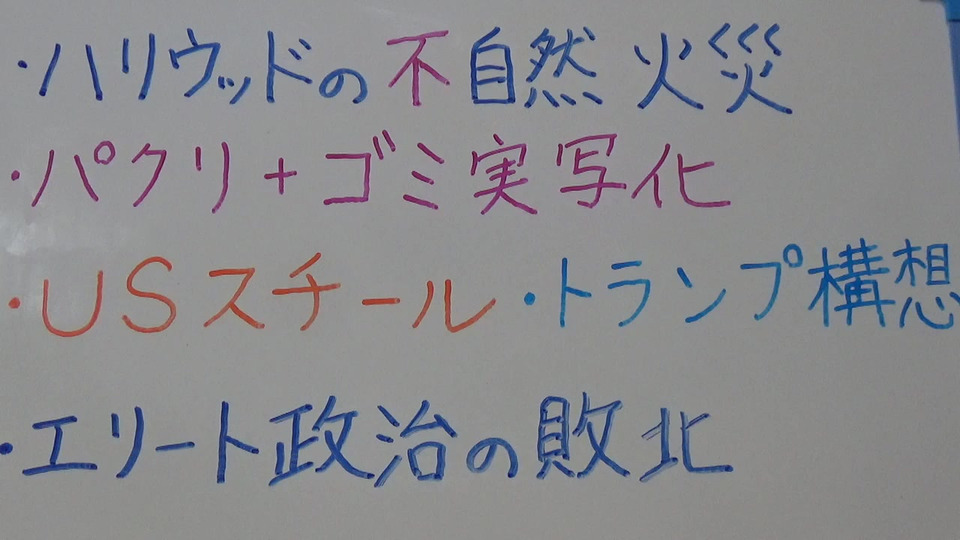 ・ハリウッドの不自然火災
・パクリ+ゴミ実写化
・USスチール・トランプ構想
・エリート政治の敗北